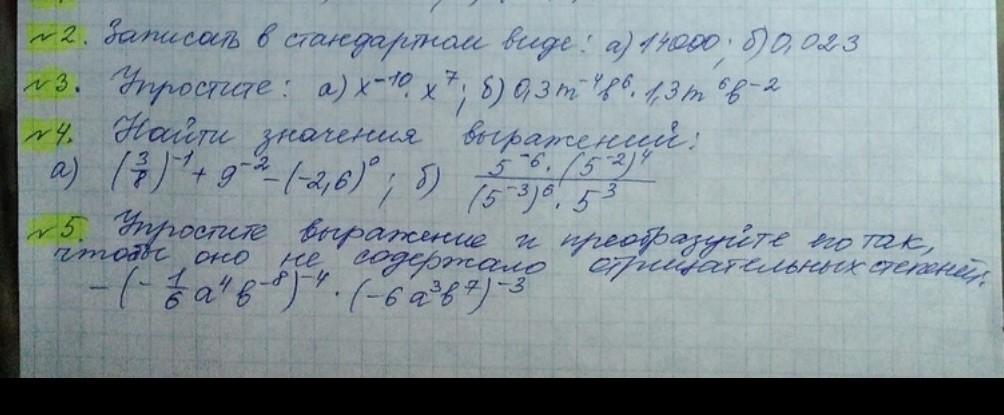 №2. Записать в стандартном виде: а) 14000; б) 0,023
№3. Упростите: а) x⁻¹⁰ · x⁷; б) 0,3m⁻⁴b⁶ · 1,3m⁶b⁻²
№4. Найти значения выражений:
а) (3/8)⁻¹ + 9⁻² − (−2,6)⁰; б) 5⁻⁶ · (5⁻²)⁴ / (5⁻³)⁶ · 5³
№5. Упростите выражение и преобразуйте его так,
чтобы оно не содержало отрицательных степеней.
−(−1/6 a⁴b⁻⁸)⁻⁴ · (−6a³b⁷)⁻³